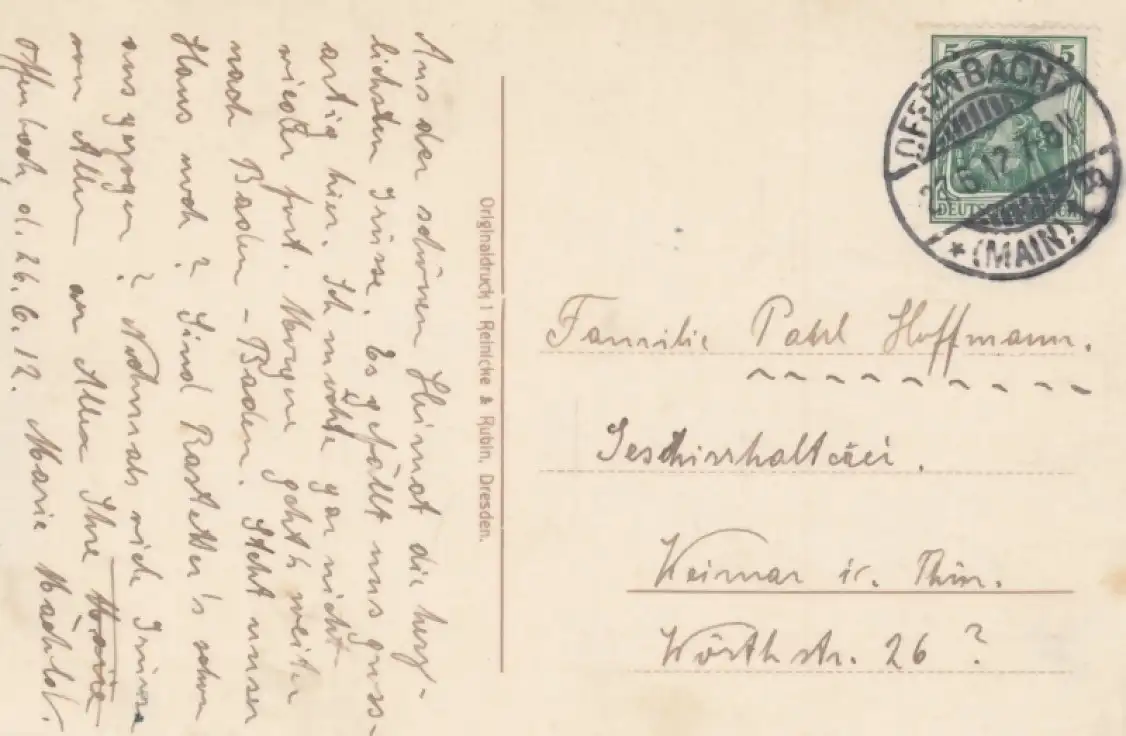 Aus der schönen Heimat die herz-
lichsten Grüsse. Es gefällt uns gross-
artig hier. Ich möchte gar nicht
wieder fort. Morgen geht's weiter
nach Baden-Baden. Steht unser
Haus noch? Sind Rastetter's schon
ausgezogen? Nochmals viele Grüsse
von Allen an Alle Ihre Marie
Offenbach, d. 26.6.12. Marie Mächtel.
Originaldruck 1 Reinicke & Rubin, Dresden.
5 5
DEUTSCHES REICH
OFFENBACH
6.12.7-8N
* (MAIN) 1
Familie Paul Hoffmann.
Geschirrhalterei.
Weimar i. Thür.
Wörthstr. 26?